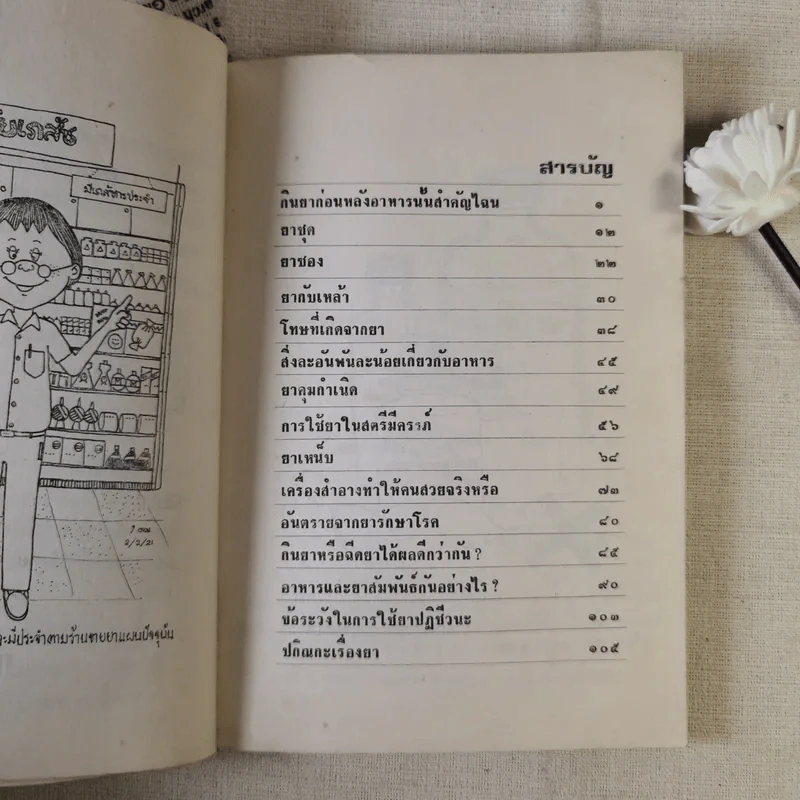 มีเภสัชกรประจำ
2/2/21
ะมีประจำตามร้านขายยาแผนปัจจุบัน
สารบัญ
กินยาก่อนหลังอาหารนั้นสำคัญไฉน ๑
ยาชุด ๑๒
ยาซอง ๒๒
ยากับเหล้า ๓๐
โทษที่เกิดจากยา ๓๘
สิ่งละอันพันละน้อยเกี่ยวกับอาหาร ๔๕
ยาคุมกำเนิด ๔๙
การใช้ยาในสตรีมีครรภ์ ๕๖
ยาเหน็บ ๖๘
เครื่องสำอางทำให้คนสวยจริงหรือ ๗๓
อันตรายจากยารักษาโรค ๘๐
กินยาหรือฉีดยาได้ผลดีกว่ากัน ? ๘๕
อาหารและยาสัมพันธ์กันอย่างไร ? ๙๐
ข้อระวังในการใช้ยาปฏิชีวนะ ๑๐๓
ปกิณกะเรื่องยา ๑๐๕